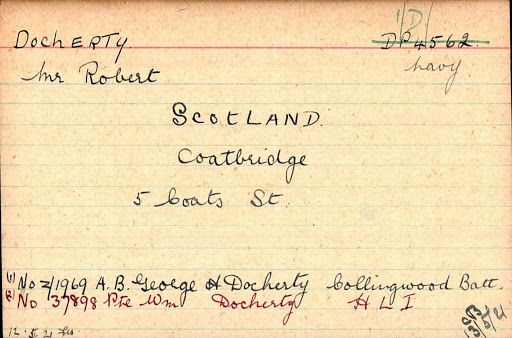 1/D
DOCHERTY. DP 4562.
Mr Robert Navy.
SCOTLAND.
Coatbridge
5 Coats St.
(1) No Z/1969 A.B. George A Docherty Collingwood Batt.
(2) No 37898 Pte Wm Docherty H L I
12.5.21